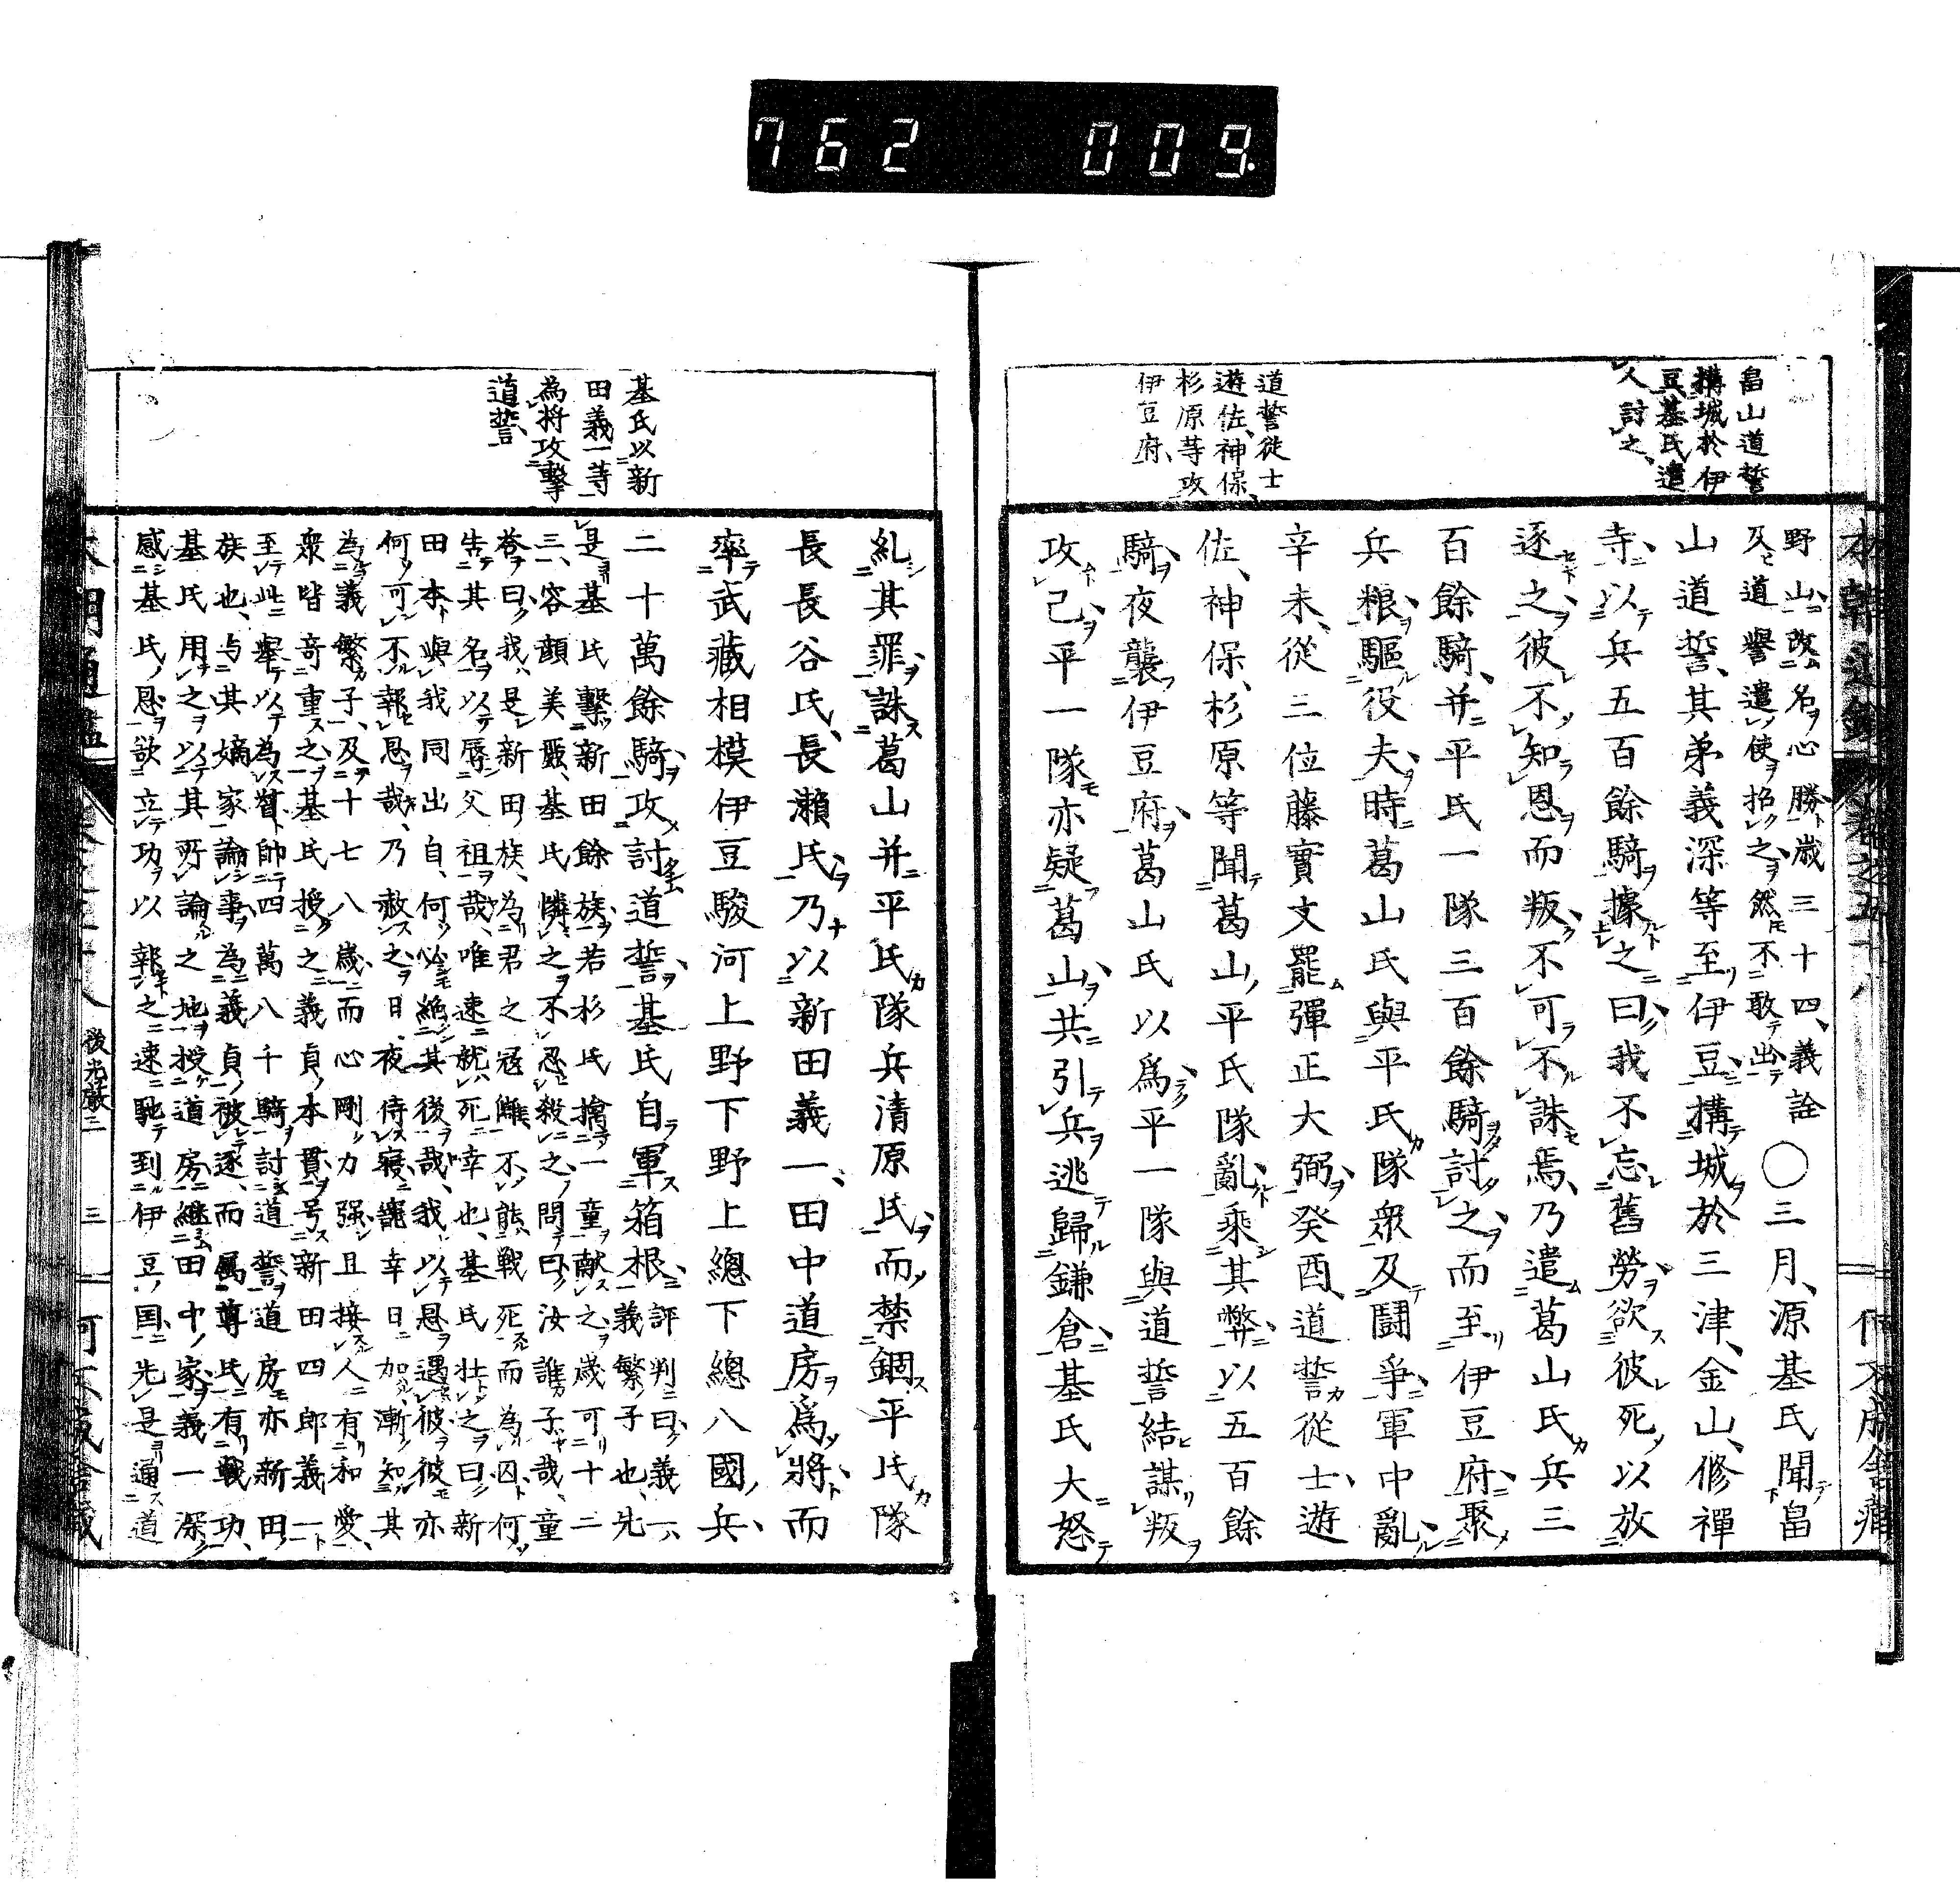 762 009
畠山道誓
構城於伊
豆、基氏遣
人討之、
道誓従士
遊佐、神保、
杉原等攻
伊豆府、
野山改名心勝歳三十四、義詮
及道誉遣使招之然不敢出
○三月、源基氏聞畠
山道誓、其弟義深等至伊豆構城於三津、金山、修禪
寺以兵五百餘騎據之曰我不忘舊勞欲彼死以放
逐之彼不知恩而叛不可不誅焉、乃遣葛山氏兵三
百餘騎、并平氏一隊三百餘騎討之而至伊豆府聚
兵粮驅役夫時葛山氏與平氏隊衆及鬪爭軍中亂
辛未、從三位藤實文罷彈正大弼癸酉、道誓從士遊
佐、神保、杉原等聞葛山平氏隊亂乘其弊以五百餘
騎夜襲伊豆府葛山氏以爲平一隊與道誓結謀叛
攻己平一隊亦疑葛山共引兵逃歸鎌倉基氏大怒
基氏以新
田義一等
為将攻撃
道誓、
糺其罪誅葛山并平氏隊兵清原氏而禁錮平氏隊
長長谷氏、長瀬氏乃以新田義一、田中道房爲將而
率武藏相模伊豆駿河上野下野上總下總八國兵、
二十萬餘騎攻討道誓基氏自軍箱根
評判曰義一、
義繁子也、先
是基氏撃新田餘族若杉氏擒一童献之歳可十二
三、容顔美麗、基氏憐之不忍殺之問曰汝誰子哉、童
答曰我是新田族、為君之寇雠不能戦死而為囚何
告其名以辱父祖哉、唯速就死幸也、基氏壮之曰新
田本與我同出自、何必絶其後哉、我以恩遇彼彼亦
何可不報恩哉、乃赦之日夜侍寝寵幸日加漸知其
為義繁子、及十七八歳而心剛力强且接人有和愛、
衆皆奇重之基氏授之義貞本貫号新田四郎義一
至此舉以為督帥四萬八千騎討道誓道房亦新田
族也、与其嫡家論事為義貞被逐、而属尊氏有戰功、
基氏用之以其所論之地授道房継田中家義一深
感基氏恩欲立功以報之速馳到伊豆国先是通道
後光厳二 三